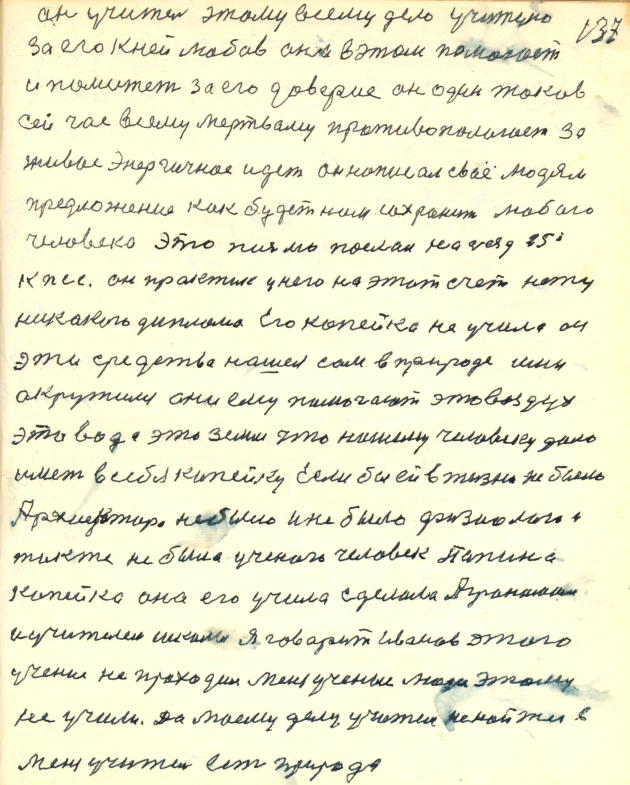 137
он учител этому всему дело учитено
за его к ней любов она в этом помогает
и поможет за его доверие он один таков
сей час всему мертваму противопологает за
живое Энергичное идет он написал своё людям
предложение как будет нам сохранит любого
человека это письмо послал на 25й
КПСС. он практик у него на этот счет нету
никакого диплома Его копейка не учила он
эти средства нашел сам в природе ими
окружился они ему помогают это воздух
это вода это земля что нашему человеку дало
имет в себя копейку Если бы ей в жизни не было
Архиектора не было и не было физиолога и
также не была ученого человек Папина
копейка она его учила сделала Аграномам
и учителем школы Я говарит Иванов этого
учение не проходил Меня ученые люди этому
не учили. Да моему делу учителя не найти в
меня учител Ест природа